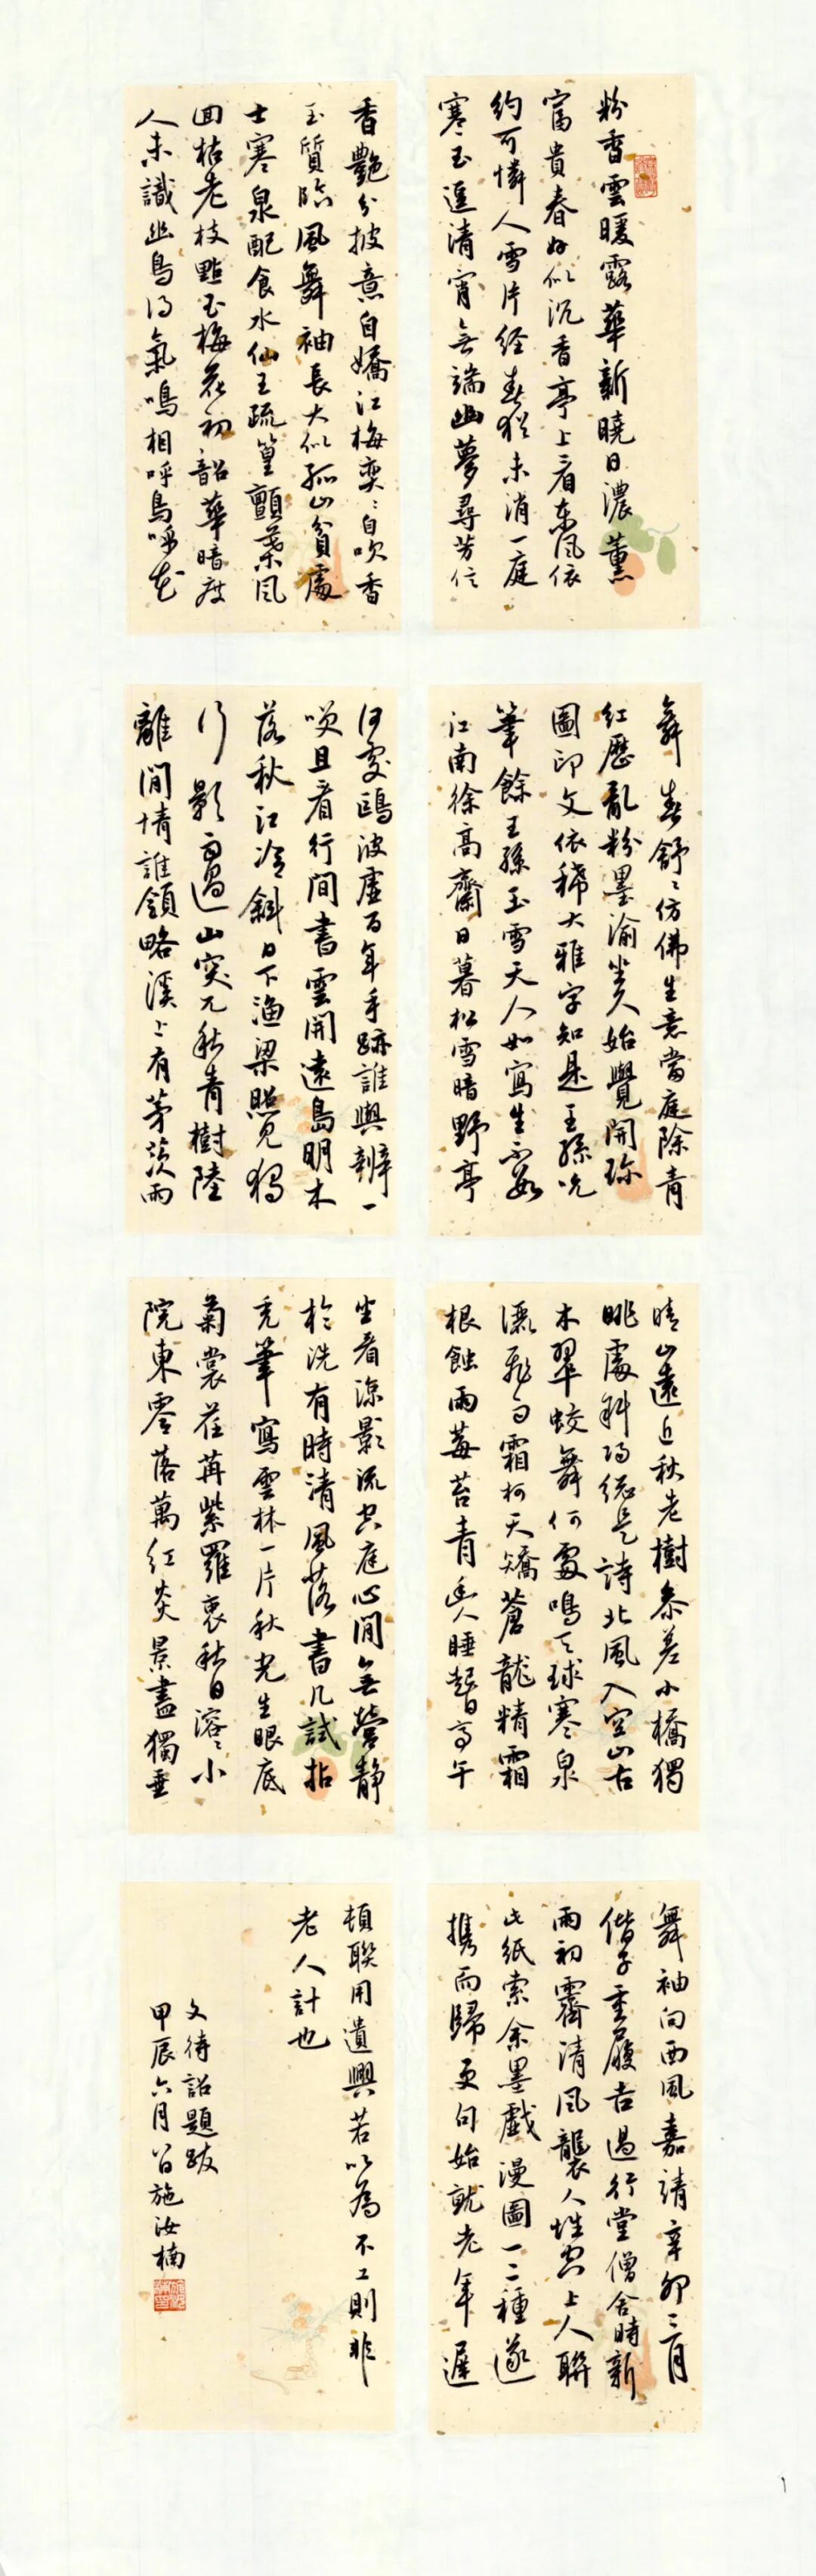 粉香雲暖露華新曉日濃薰
富貴春好似沉香亭上看東風依
約可憐人雪片經春猶未消一庭
寒玉逞清宵無端幽夢尋芳信
香艷分披意自嬌江梅奕〻自吹香
玉質臨風舞袖長大似孤山貧處
士寒泉配食水仙王疏篁顫葉風
回枯老枝點玉梅花初韶華暗度
人未識幽鳥得氣鳴相呼鳥呼花
舞春舒〻仿佛生意當庭除青
紅歷亂粉墨渝坐人始覺開珍
圖印文依稀大雅字知是王孫吮
筆餘王孫玉雪天人如寫生不數
江南徐高齋日暮松雪暗野亭
何處鷗波虛百年手跡誰與辨一
笑且看行間書雲開遠島明木
落秋江冷斜日下漁梁照見獨
行影雨過山突兀秋青樹陸
離閒情誰領略溪上有茅茨雨
晴山遠近秋老樹參差小橋獨
眺處料得總是詩北風入空山古
木翠蛟舞何處鳴天球寒泉
瀉飛雨霜柯夭矯蒼龍精霜
根蝕雨莓苔青幽人睡起日高午
坐看涼影流空庭心閒無營靜
於洗有時清風落書几試拈
禿筆寫雲林一片秋光生眼底
菊裳荏苒紫羅裏秋日溶〻小
院東零落萬紅炎景盡獨垂
舞袖向西風嘉靖辛卯二月
偕子重履吉過行堂僧舍時新
雨初霽清風襲人性空上人聯
此紙索余墨戲漫圖一二種遂
攜而歸更旬始就老年遲
頓聯用遺興若以為不工則非
老人計也
文待詔題跋
甲辰六月 施汝楠